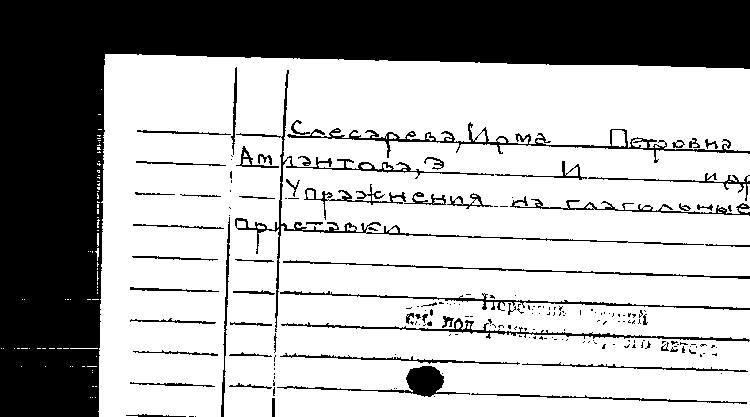 Слесарева, Ирма Петровна
Амиантова, Э И и др
Упражнения на глагольные
приставки.
Перечень изданий
см. под фамилией первого автора